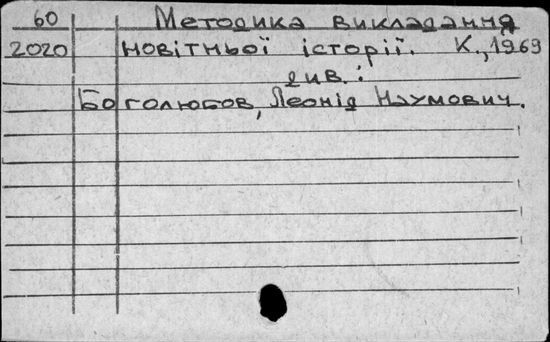 60 Методика викладання
2020 новітньої історії. К., 1969
див.:
Боголюбов, Леонід Наумович.